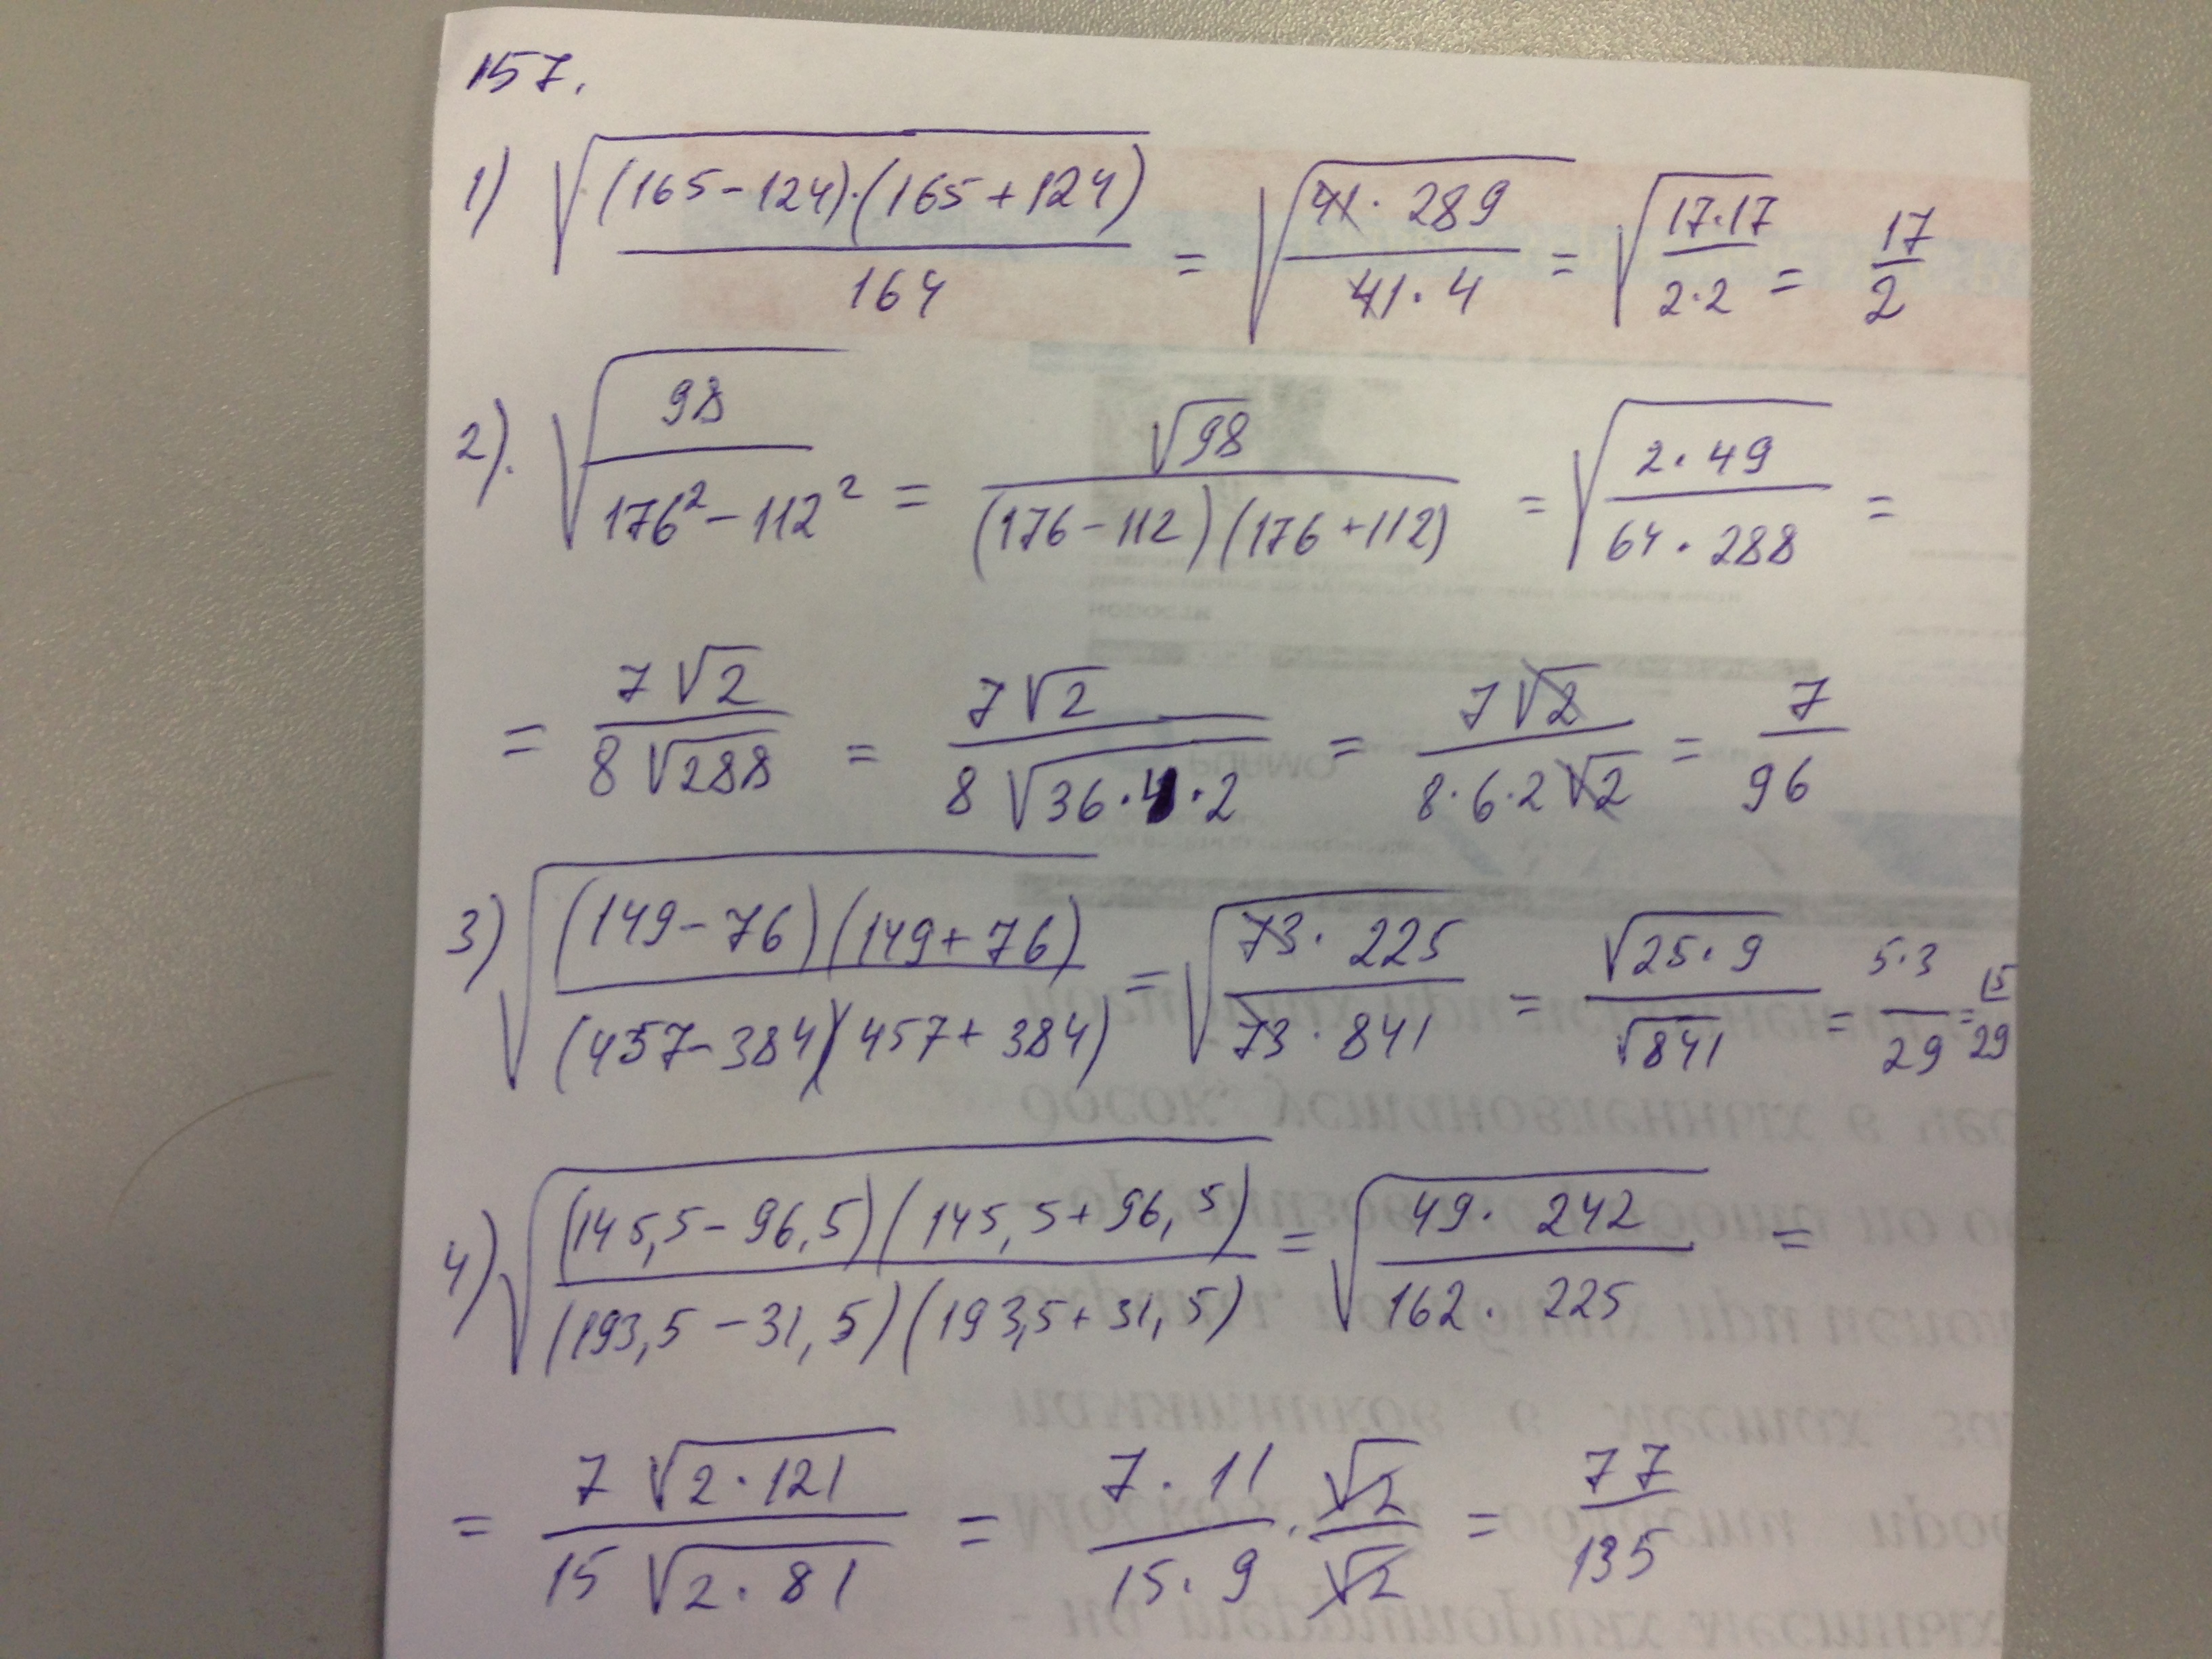 157.
1) √((165-124)·(165+124)/164) = √(41·289/41·4) = √(17·17/2·2) = 17/2
2). √(98/176²-112²) = √98/(176-112)(176+112) = √(2·49/64·288) =
= 7√2/8√288 = 7√2/8√(36·4·2) = 7√2/8·6·2√2 = 7/96
3) √((149-76)(149+76)/(457-384)(457+384)) = √(73·225/73·841) = √(25·9)/√841 = 5·3/29 = 15/29
4) √((145,5-96,5)(145,5+96,5)/(193,5-31,5)(193,5+31,5)) = √(49·242/162·225) =
= 7√(2·121)/15√(2·81) = 7·11/15·9 · √2/√2 = 77/135